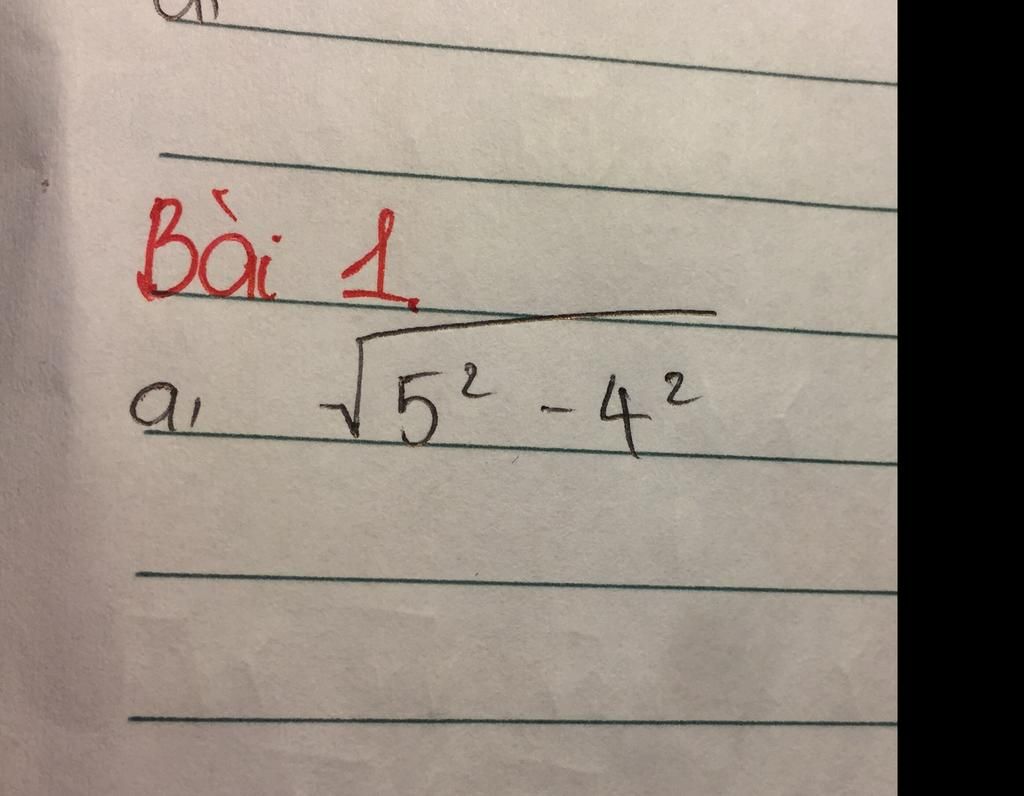 Bài 1.
a, √(5² - 4²)